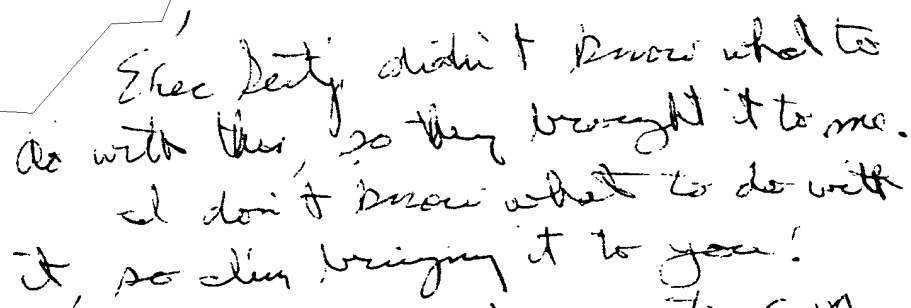 Exec Secty didn't know what to
do with this, so they brought it to me.
I don't know what to do with
it, so I'm bringing it to you!